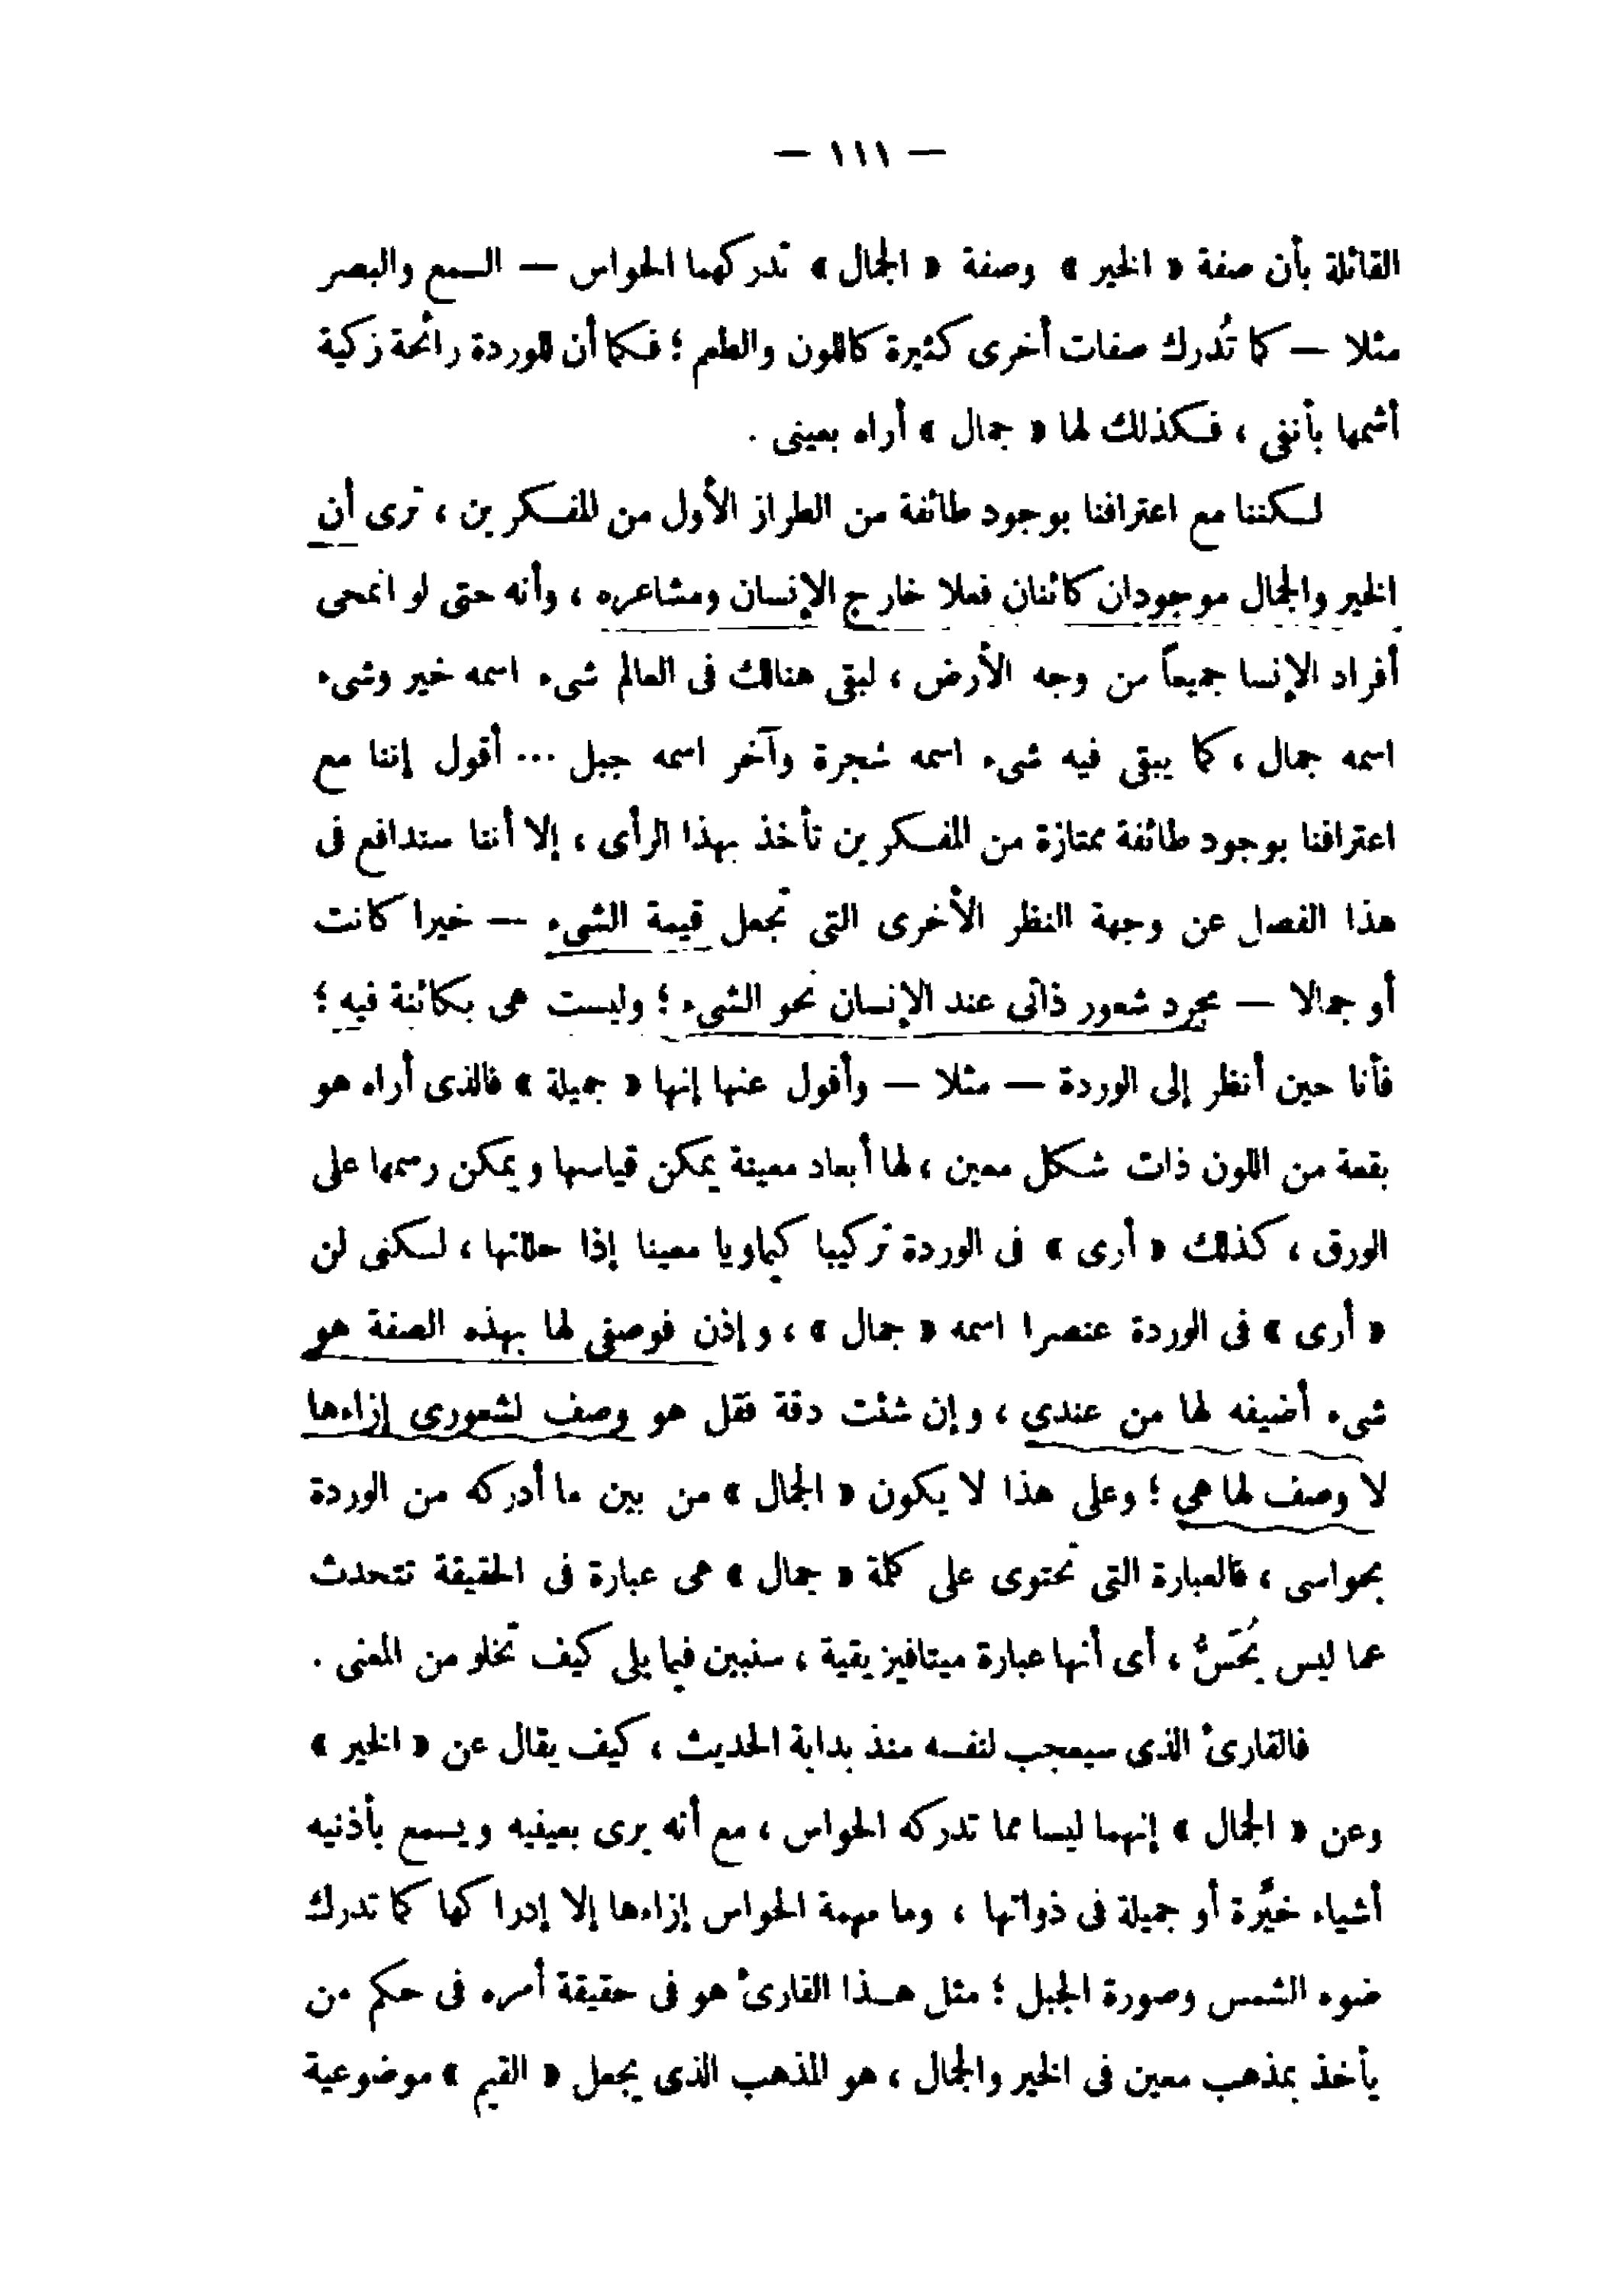 — ١١١ —
القائلة بأن صفة « الخير » وصفة « الجمال » تدركهما الحواس — السمع والبصر
مثلا — كما تُدرك صفات أخرى كثيرة كاللون والطعم ؛ فكما أن للوردة رائحة زكية
أشمها بأنفى ، فكذلك لها « جمال » أراه بعينى .
لكننا مع اعترافنا بوجود طائفة من الطراز الأول من المفكرين ، ترى أن
الخير والجمال موجودان كائنان فعلا خارج الإنسان ومشاعره ، وأنه حتى لو انمحى
أفراد الإنسا جميعاً من وجه الأرض ، لبقى هنالك فى العالم شىء اسمه خير وشىء
اسمه جمال ، كما يبقى فيه شىء اسمه شجرة وآخر اسمه جبل ... أقول إننا مع
اعترافنا بوجود طائفة ممتازة من المفكرين تأخذ بهذا الرأى ، إلا أننا سندافع فى
هذا الفصل عن وجهة النظر الأخرى التى تجعل قيمة الشىء — خيرا كانت
أو جمالا — مجرد شعور ذاتى عند الإنسان نحو الشىء ؛ وليست هى بكائنة فيه ؛
فأنا حين أنظر إلى الوردة — مثلا — وأقول عنها إنها « جميلة » فالذى أراه هو
بقعة من اللون ذات شكل معين ، لها أبعاد معينة يمكن قياسها ويمكن رسمها على
الورق ، كذلك « أرى » فى الوردة تركيبا كيماويا معينا إذا حللتها ، لكنى لن
« أرى » فى الوردة عنصرا اسمه « جمال » ، وإذن فوصفى لها بهذه الصفة هو
شىء أضيفه لها من عندى ، وإن شئت دقة فقل هو وصف لشعورى إزاءها
لا وصف لها هى ؛ وعلى هذا لا يكون « الجمال » من بين ما أدركه من الوردة
بحواسى ، فالعبارة التى تحتوى على كلمة « جمال » هى عبارة فى الحقيقة تتحدث
عما ليس يُحَسُّ ، أى أنها عبارة ميتافيزيقية ، سنبين فيما يلى كيف تخلو من المعنى .
فالقارئ الذى سيعجب لنفسه منذ بداية الحديث ، كيف يقال عن « الخير »
وعن « الجمال » إنهما ليسا مما تدركه الحواس ، مع أنه يرى بعينيه ويسمع بأذنيه
أشياء خيِّرة أو جميلة فى ذواتها ، وما مهمة الحواس إزاءها إلا إدراكها كما تدرك
ضوء الشمس وصورة الجبل ؛ مثل هذا القارئ هو فى حقيقة أمره فى حكم من
يأخذ بمذهب معين فى الخير والجمال ، هو المذهب الذى يجعل « القيم » موضوعية